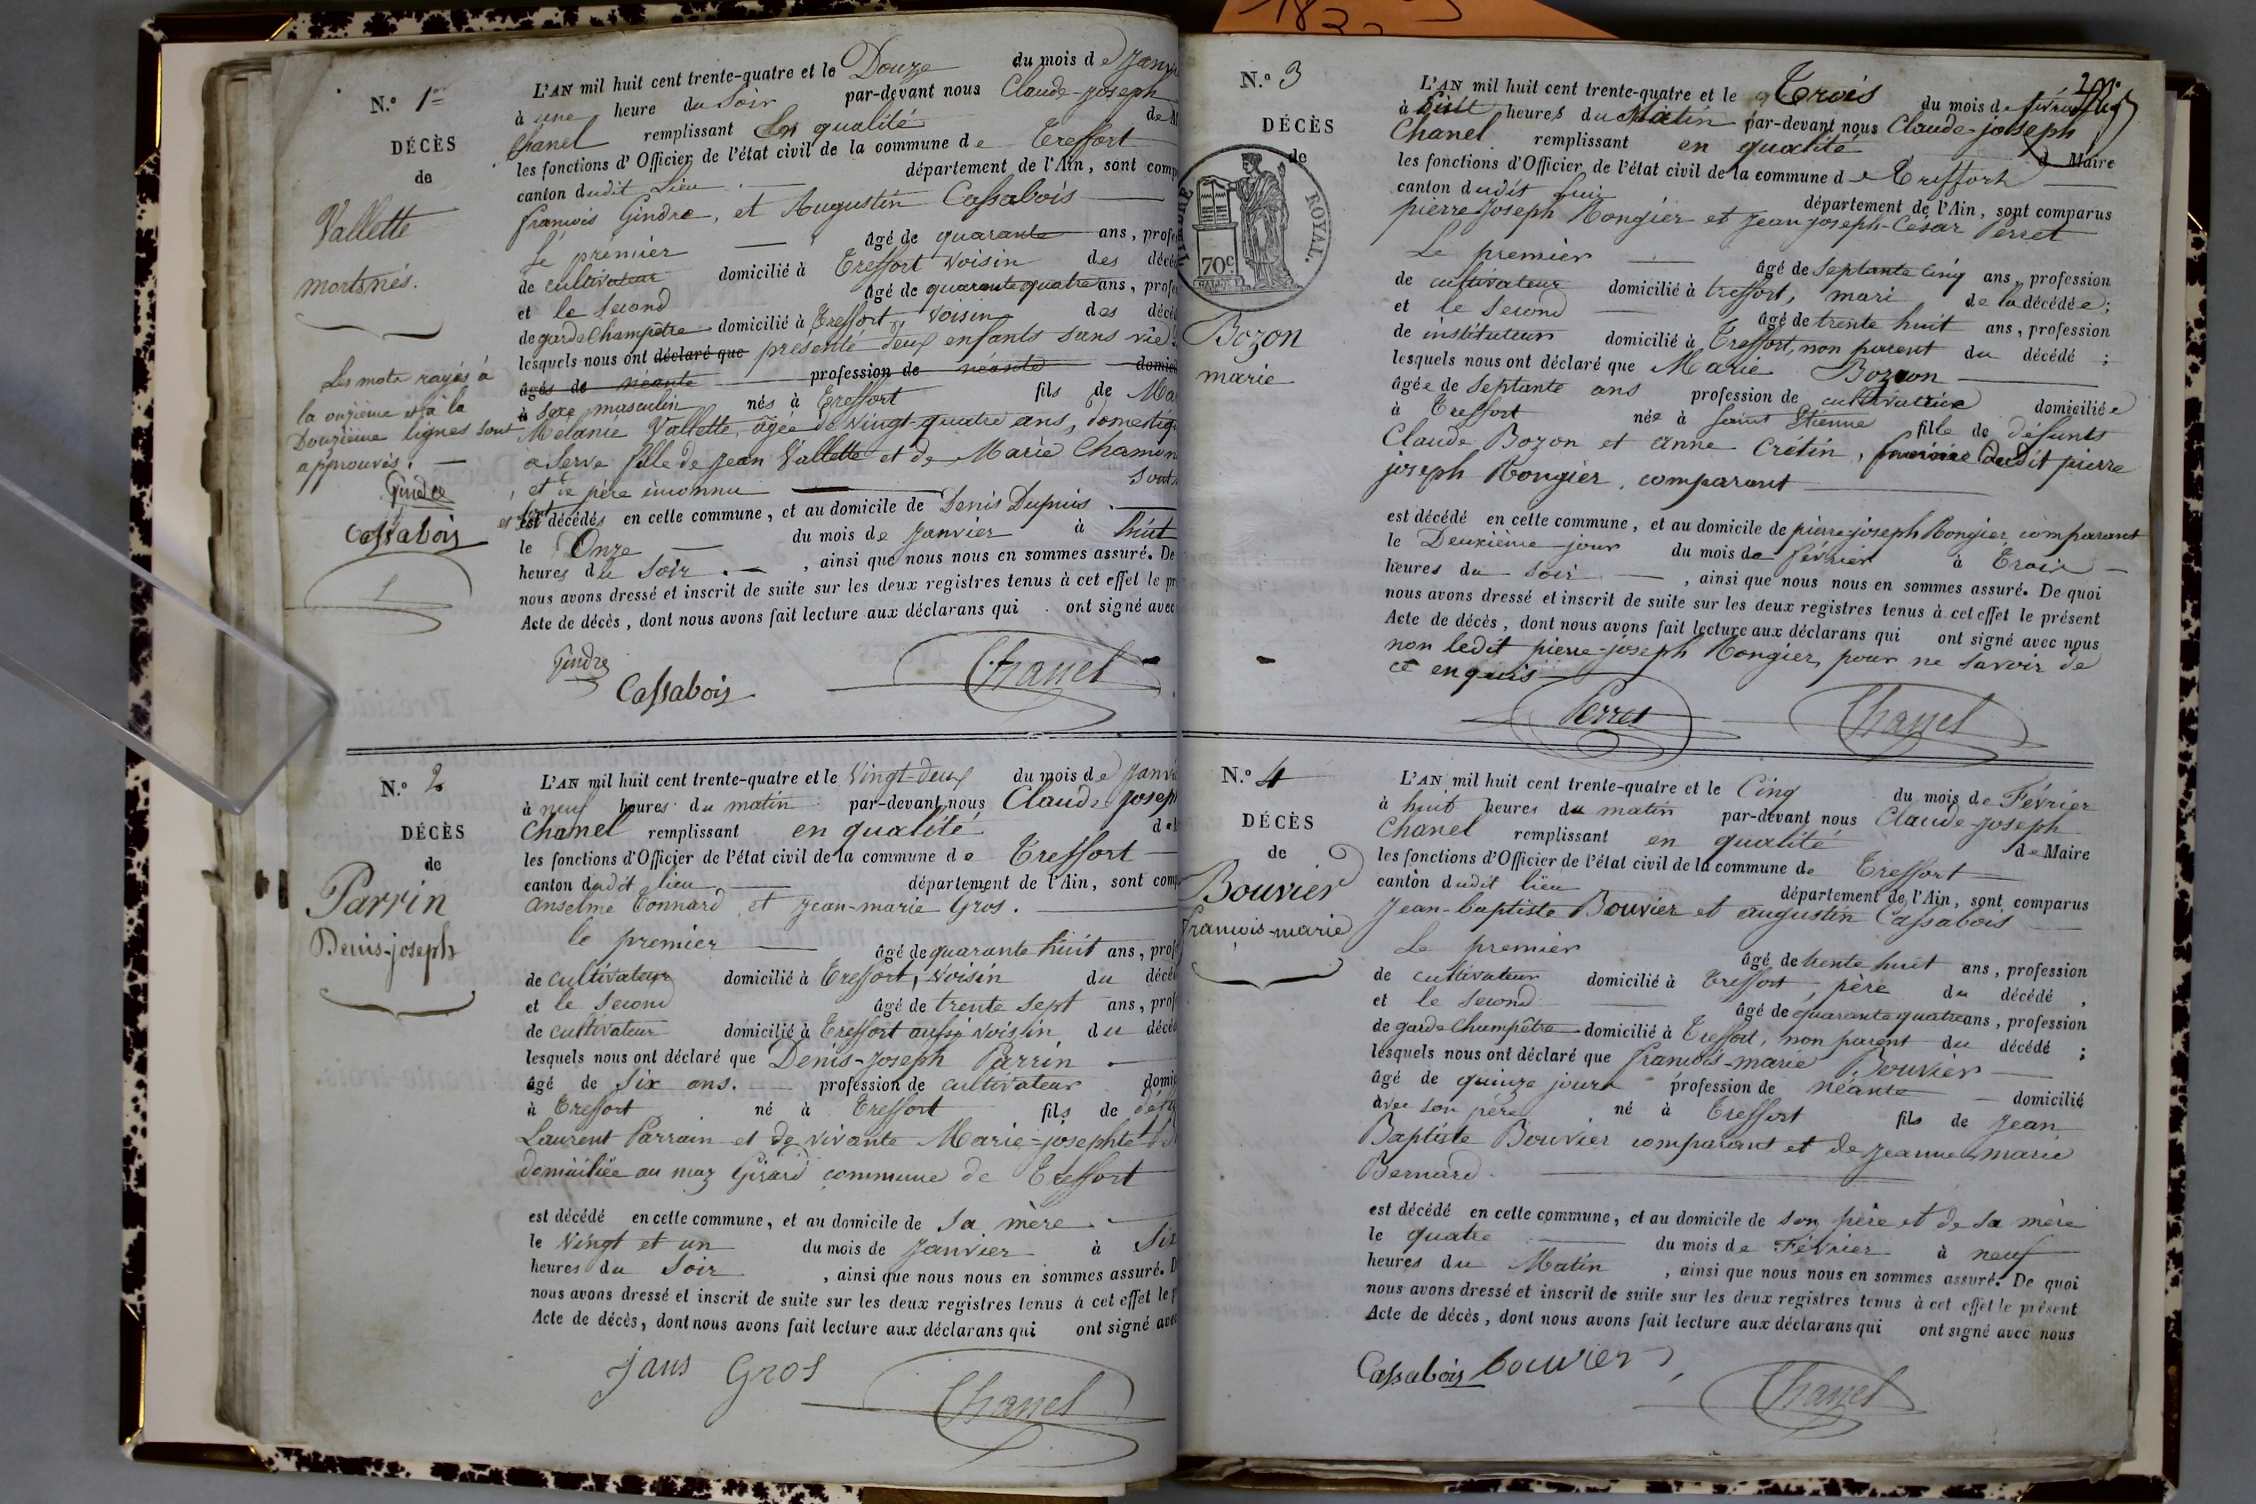 N.º 1er
DÉCÈS
de
Vallette
mortsnés.
Les mots rayés à
la onzième et à la
Douzième lignes sont
approuvés.
Gindre
Cassabois
L'AN mil huit cent trente-quatre et le Douze du mois de Janvi
à une heure du Soir par-devant nous Claude-joseph
Chanel remplissant En qualité de M
les fonctions d'Officier de l'état civil de la commune de Treffort
canton dudit Lieu département de l'Ain, sont comp
françois Gindre, et Augustin Cassabois
Le premier âgé de quarante ans, profe
de cultivateur domicilié à Treffort voisin des décé
et le second âgé de quarante quatre ans, profe
de garde champêtre domicilié à Treffort voisin des décé
lesquels nous ont déclaré que présenté deux enfants sans vie
âgés de néante profession de néante domici
à sexe masculin nés à Treffort fils de Mar
Mélanie Vallette, âgée de vingt-quatre ans, domestiq
a Serve fille de Jean Vallette et de Marie Chamon
, et de père inconnu sont
et sont est décédés en cette commune, et au domicile de Denis Dupuis
le Onze du mois de Janvier à huit
heures du Soir , ainsi que nous nous en sommes assuré. De
nous avons dressé et inscrit de suite sur les deux registres tenus à cet effet le pr
Acte de décès, dont nous avons fait lecture aux déclarans qui ont signé avec
Gindre
Cassabois
Chanel
N.º 2
DÉCÈS
de
Parrin
Denis-joseph
L'AN mil huit cent trente-quatre et le Vingt-deux du mois de Janvi
à neuf heures du matin par-devant nous Claude Joseph
Chanel remplissant en qualité de
les fonctions d'Officier de l'état civil de la commune de Treffort
canton dudit lieu département de l'Ain, sont comp
Anselme Tonnard et Jean-marie Gros.
le premier âgé de quarante huit ans, profe
de cultivateur domicilié à Treffort, voisin du décé
et le second âgé de trente sept ans, prof
de cultivateur domicilié à Treffort aussi voisin du décé
lesquels nous ont déclaré que Denis-Joseph Parrin
âgé de six ans. profession de cultivateur domic
à Treffort né à Treffort fils de défu
Laurent Parrain et de vivante Marie-josephte
domiciliée au maz Girard commune de Treffort
est décédé en cette commune, et au domicile de sa mère
le Vingt et un du mois de Janvier à Six
heures du Soir , ainsi que nous nous en sommes assuré. D
nous avons dressé et inscrit de suite sur les deux registres tenus à cet effet le p
Acte de décès, dont nous avons fait lecture aux déclarans qui ont signé avec
Gros
Chanel
N.º 3
DÉCÈS
de
ROYAL.
70c
Bozon
marie
L'AN mil huit cent trente-quatre et le Trois du mois de février
à huit heures du Matin par-devant nous Claude-joseph
Chanel remplissant en qualité de Maire
les fonctions d'Officier de l'état civil de la commune de Treffort
canton dudit lieu département de l'Ain, sont comparus
pierre Joseph Rongier et Jean joseph-César Perret
Le premier âgé de septante cinq ans, profession
de cultivateur domicilié à treffort, mari de la décédée;
et le second âgé de trente huit ans, profession
de instituteur domicilié à Treffort, non parent du décédé ;
lesquels nous ont déclaré que Marie Bozon
âgée de septante ans profession de cultivatrice domiciliée
à Treffort née à Saint Etienne fille de défunts
Claude Bozon et Anne Crétin, dudit pierre
joseph Rongier, comparant
est décédé en cette commune, et au domicile de pierre joseph Rongier comparant
le Deuxième jour du mois de février à Trois
heures du soir , ainsi que nous nous en sommes assuré. De quoi
nous avons dressé et inscrit de suite sur les deux registres tenus à cet effet le présent
Acte de décès, dont nous avons fait lecture aux déclarans qui ont signé avec nous
non ledit pierre-joseph Rongier, pour ne savoir de
ce enquis
Perret
Chanel
N.º 4
DÉCÈS
de
Bouvier
françois-marie
L'AN mil huit cent trente-quatre et le Cinq du mois de Février
à huit heures du matin par-devant nous Claude-joseph
Chanel remplissant en qualité de Maire
les fonctions d'Officier de l'état civil de la commune de Treffort
canton dudit lieu département de l'Ain, sont comparus
Jean-baptiste Bouvier et augustin Cassabois
Le premier âgé de trente huit ans, profession
de cultivateur domicilié à Treffort, père du décédé ,
et le second âgé de quarante quatre ans, profession
de garde Champêtre domicilié à Treffort, non parent du décédé ;
lesquels nous ont déclaré que françois-marie Bouvier
âgé de quinze jours profession de néante domicilié
avec son père né à Treffort fils de Jean
Baptiste Bouvier comparant et de Jeanne marie
Bernard.
est décédé en cette commune, et au domicile de son père et de sa mère
le quatre du mois de Février à neuf
heures du Matin , ainsi que nous nous en sommes assuré. De quoi
nous avons dressé et inscrit de suite sur les deux registres tenus à cet effet le présent
Acte de décès, dont nous avons fait lecture aux déclarans qui ont signé avec nous
Cassabois bouvier
Chanel